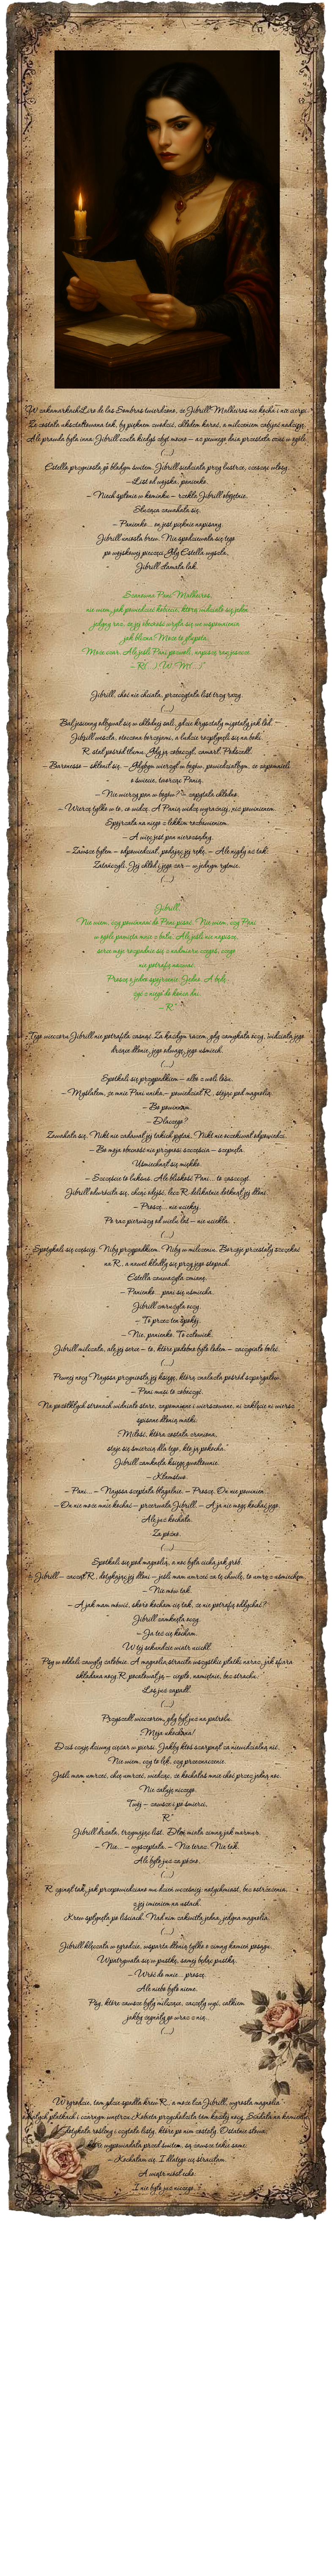 "W zakamarkach Lire de las Sombras twierdzono, że Jibrill Malheiros nie kocha i nie cierpi.
Że została ukształtowana tak, by pięknem zwodzić, chłodem karać, a milczeniem zabijać nadzieję.
Ale prawda była inna. Jibrill czuła kiedyś zbyt mocno – aż pewnego dnia przestała czuć w ogóle.
(...)
Estella przyniosła go bladym świtem. Jibrill siedziała przy lustrze, czesząc włosy.
– List od wojska, panienko.
– Niech spłonie w kominku – rzekła Jibrill obojętnie.
Służąca zawahała się.
– Panienko... on jest pięknie napisany.
Jibrill uniosła brew. Nie spodziewała się tego
po wojskowej pieczęci. Gdy Estella wyszła,
Jibrill złamała lak.
Szanowna Pani Malheiros,
nie wiem, jak powiedzieć kobiecie, którą widziało się jeden
jedyny raz, że jej obecność wryła się we wspomnienia
jak blizna. Może to głupota.
Może czar. Ale jeśli Pani pozwoli, napiszę raz jeszcze.
– R(...) W. M(...)"
Jibrill, choć nie chciała, przeczytała list trzy razy.
(...)
Bal jesienny odbywał się w chłodnej sali, gdzie kryształy migotały jak lód.
Jibrill weszła, otoczona borzojami, a ludzie rozstąpili się na boki.
R. stał pośród tłumu. Gdy ją zobaczył, zamarł. Podszedł.
– Baronesso – skłonił się. – Gdybym wierzył w bogów, powiedziałbym, że zapomnieli
o świecie, tworząc Panią.
– Nie wierzy pan w bogów? – zapytała chłodno.
– Wierzę tylko w to, co widzę. A Panią widzę wyraźniej, niż powinienem.
Spojrzała na niego z lekkim rozbawieniem.
– A więc jest pan nierozsądny.
– Zawsze byłem – odpowiedział, podając jej rękę. – Ale nigdy aż tak.
Zatańczyli. Jej chłód i jego żar – w jednym rytmie.
(...)
Jibrill,
Nie wiem, czy powinnam do Pani pisać. Nie wiem, czy Pani
w ogóle pamięta mnie z balu. Ale jeśli nie napiszę,
serce moje rozpadnie się z nadmiaru czegoś, czego
nie potrafię nazwać.
Proszę o jedno spojrzenie. Jedno. A będę
żyć z niego do końca dni.
– R."
Tego wieczora Jibrill nie potrafiła zasnąć. Za każdym razem, gdy zamykała oczy, widziała jego
drżące dłonie, jego odwagę, jego uśmiech.
(...)
Spotkali się przypadkiem – albo z woli losu.
– Myślałem, że mnie Pani unika – powiedział R., stojąc pod magnolią.
– Bo powinnam.
– Dlaczego?
Zawahała się. Nikt nie zadawał jej takich pytań. Nikt nie oczekiwał odpowiedzi.
– Bo moja obecność nie przynosi szczęścia – szepnęła.
Uśmiechnął się miękko.
– Szczęście to luksus. Ale bliskość Pani... to zaszczyt.
Jibrill odwróciła się, chcąc odejść, lecz R. delikatnie dotknął jej dłoni.
– Proszę... nie uciekaj.
Po raz pierwszy od wielu lat – nie uciekła.
(...)
Spotykali się częściej. Niby przypadkiem. Niby w milczeniu. Borzoje przestały szczekać
na R., a nawet kładły się przy jego stopach.
Estella zauważyła zmianę.
– Panienko... pani się uśmiecha.
Jibrill zmrużyła oczy.
– To przez ten spokój.
– Nie, panienko. To człowiek.
Jibrill milczała, ale jej serce – to, które podobno było lodem – zaczynało boleć.
(...)
Pewnej nocy Nayssa przyniosła jej księgę, którą znalazła pośród szpargałów.
– Pani musi to zobaczyć.
Na pożółkłych stronach widniało stare, zapomniane i wierszowane, ni zaklęcie ni wiersz
spisane dłonią matki:
"Miłość, która została zraniona,
staje się śmiercią dla tego, kto ją pokocha."
Jibrill zamknęła księgę gwałtownie.
– Kłamstwo.
– Pani... – Nayssa szeptała błagalnie. – Proszę. On nie powinien...
– On nie może mnie kochać – przerwała Jibrill. – A ja nie mogę kochać jego.
Ale już kochała.
Za późno.
(...)
Spotkali się pod magnolią, a noc była cicha jak grób.
– Jibrill – zaczął R., dotykając jej dłoni – jeśli mam umrzeć za tę chwilę, to umrę z uśmiechem.
– Nie mów tak.
– A jak mam mówić, skoro kocham cię tak, że nie potrafię oddychać?
Jibrill zamknęła oczy.
– Ja też cię kocham.
W tej sekundzie wiatr ucichł.
Psy w oddali zawyły żałobnie. A magnolia straciła wszystkie płatki naraz, jak ofiara
składana nocy. R. pocałował ją – ciepło, namiętnie, bez strachu.
Los już zapadł.
(...)
Przyszedł wieczorem, gdy był już na patrolu.
"Moja ukochana!
Dziś czuję dziwny ciężar w piersi. Jakby ktoś szarpnął za niewidzialną nić.
Nie wiem, czy to lęk, czy przeznaczenie.
Jeśli mam umrzeć, chcę umrzeć, wiedząc, że kochałaś mnie choć przez jedną noc.
Nie żałuję niczego.
Twój – zawsze i po śmierci,
R."
Jibrill drżała, trzymając list. Dłoń miała zimną jak marmur.
– Nie... – wyszeptała. – Nie teraz. Nie tak.
Ale było już za późno.
(...)
R. zginął tak, jak przepowiedziano mu dzień wcześniej: natychmiast, bez ostrzeżenia,
z jej imieniem na ustach.
Krew spłynęła po liściach. Nad nim zakwitła jedna, jedyna magnolia.
(...)
Jibrill klęczała w ogrodzie, wsparta dłonią tylko o zimny kamień posągu.
Wpatrywała się w pustkę, samej będąc pustką.
– Wróć do mnie... proszę.
Ale niebo było nieme.
Psy, które zawsze były milczące, zaczęły wyć, całkiem
jakby żegnały go wraz z nią...
(...)
W ogrodzie, tam gdzie spadła krew R., a może łza Jibrill, wyrosła magnolia
białych płatkach i czarnym wnętrzu. Kobieta przychodziła tam każdej nocy. Siadała na kamieniu.
Dotykała rośliny i czytała listy, które po nim zostały. Ostatnie słowa,
które wypowiadała przed świtem, są zawsze takie same:
– Kochałam cię. I dlatego cię straciłam.
A wiatr niósł echo.
I nie było już niczego..."